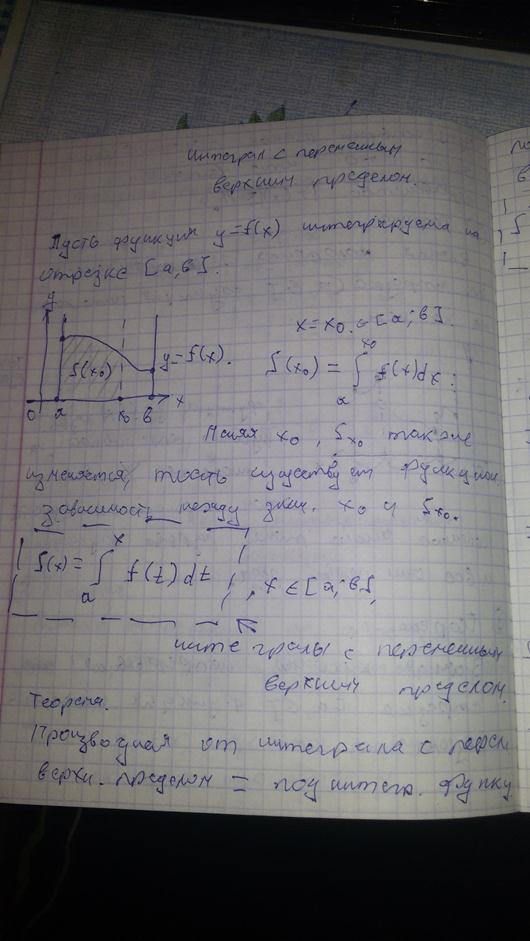 интеграл с переменным
верхним пределом.
Пусть функция y=f(x) интегрируема на
отрезке [a,b].
y
x=x₀ ∈ [a;b].
S(x₀)
y=f(x).
S(x₀) = ∫ₐˣ⁰ f(x)dx.
0 a x₀ b x
Меняя x₀, Sx₀ также
изменяется, тость существует функцион.
зависимость между знач. x₀ и Sx₀.
S(x) = ∫ₐˣ f(t)dt, x ∈ [a;b],
интегралы с переменным
верхним пределом.
Теорема.
Производная от интеграла с перем
верхн. пределом = подинтегр. функц